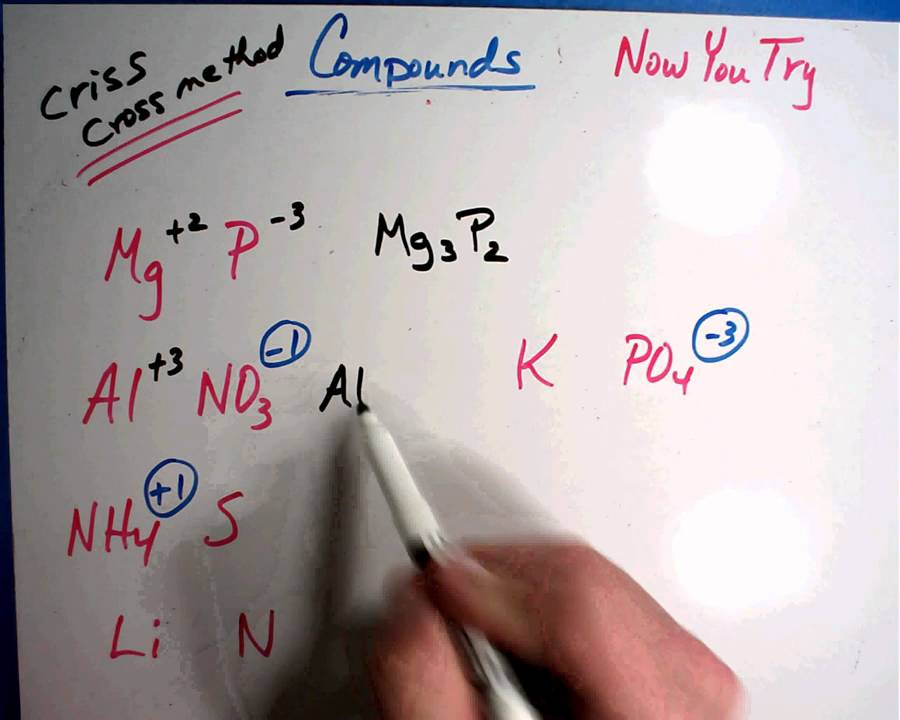 Criss
Cross method
Compounds
Now You Try
Mg⁺² P⁻³ Mg₃P₂
Al⁺³ NO₃ ⁻¹ Al
K PO₄ ⁻³
NH₄ ⁺¹ S
Li N